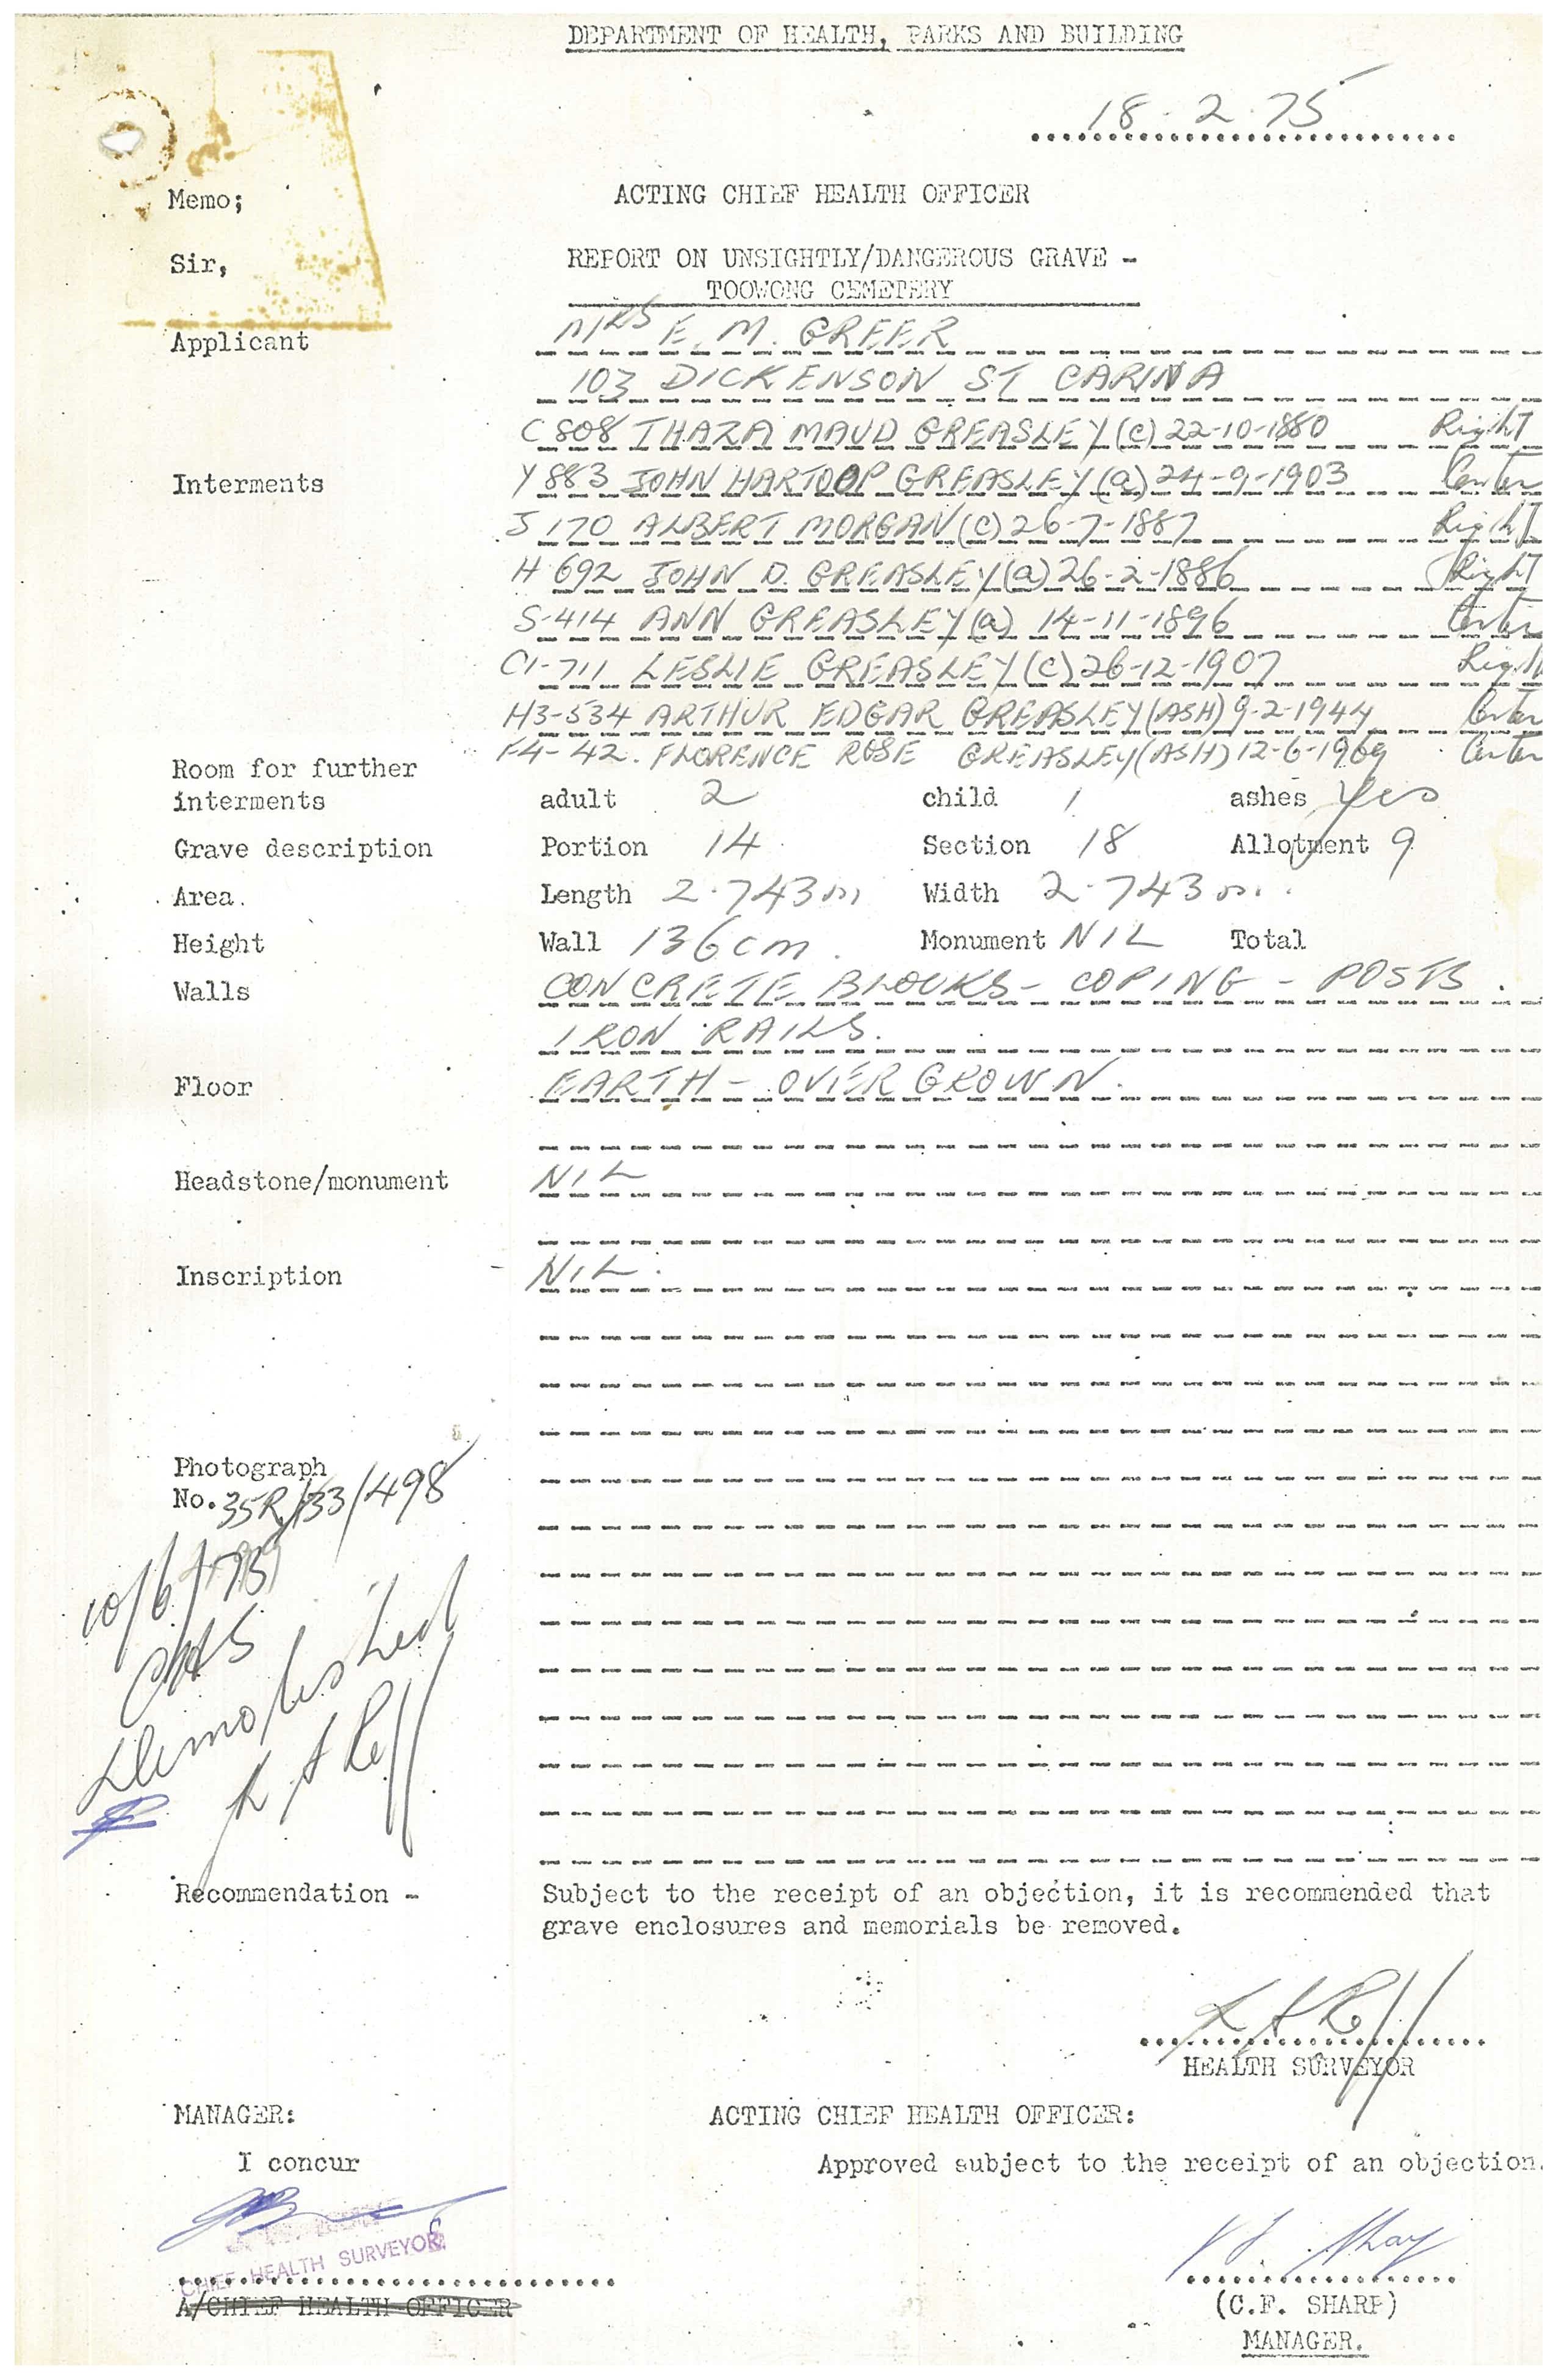 DEPARTMENT OF HEALTH, PARKS AND BUILDING
18-2-75
Memo; ACTING CHIEF HEALTH OFFICER
Sir, REPORT ON UNSIGHTLY/DANGEROUS GRAVE -
TOOWONG CEMETERY
Applicant MRS E. M. GREER
103 DICKENSON ST CARINA
C808 THAZA MAUD GREASLEY (c) 22-10-1880 Right
Interments Y883 JOHN HARTOOP GREASLEY (a) 24-9-1903 Center
J170 ALBERT MORGAN (c) 26-7-1887 Right
H692 JOHN D. GREASLEY (a) 26-2-1886 Right
S-414 ANN GREASLEY (a) 14-11-1896 Center
C1-711 LESLIE GREASLEY (c) 26-12-1907 Right
H3-534 ARTHUR EDGAR GREASLEY (ASH) 9-2-1944 Center
F4-42. FLORENCE ROSE GREASLEY (ASH) 12-6-1969 Center
Room for further
interments adult 2 child 1 ashes Yes
Grave description Portion 14 Section 18 Allotment 9
Area. Length 2.743m Width 2.743m.
Height Wall 136cm. Monument NIL Total
Walls CONCRETE BLOCKS - COPING - POSTS.
IRON RAILS.
Floor EARTH - OVERGROWN.
Headstone/monument NIL
Inscription NIL.
Photograph
No. 35R/33/498
10/6/75
CHS
Demolished
Recommendation - Subject to the receipt of an objection, it is recommended that
grave enclosures and memorials be removed.
HEALTH SURVEYOR
MANAGER: ACTING CHIEF HEALTH OFFICER:
I concur Approved subject to the receipt of an objection.
CHIEF HEALTH SURVEYOR
A/CHIEF HEALTH OFFICER (C.F. SHARP)
MANAGER.